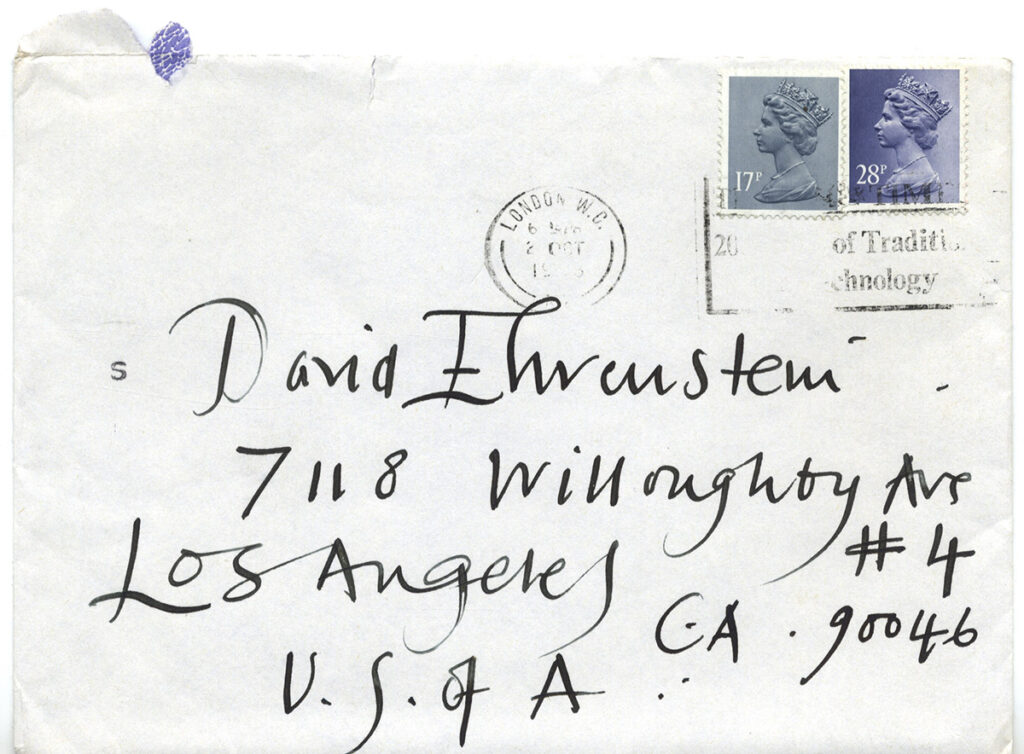 17P 28P
LONDON W.C.
2 OCT
20 of Traditi
chnology
S
David Ehrenstein
7118 Willoughby Ave
# 4
Los Angeles
CA. 90046
U.S. of A